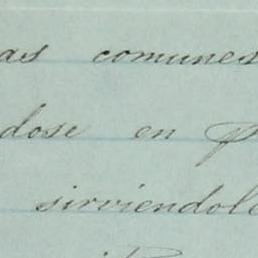 as comunes
dose en p
sirviendole